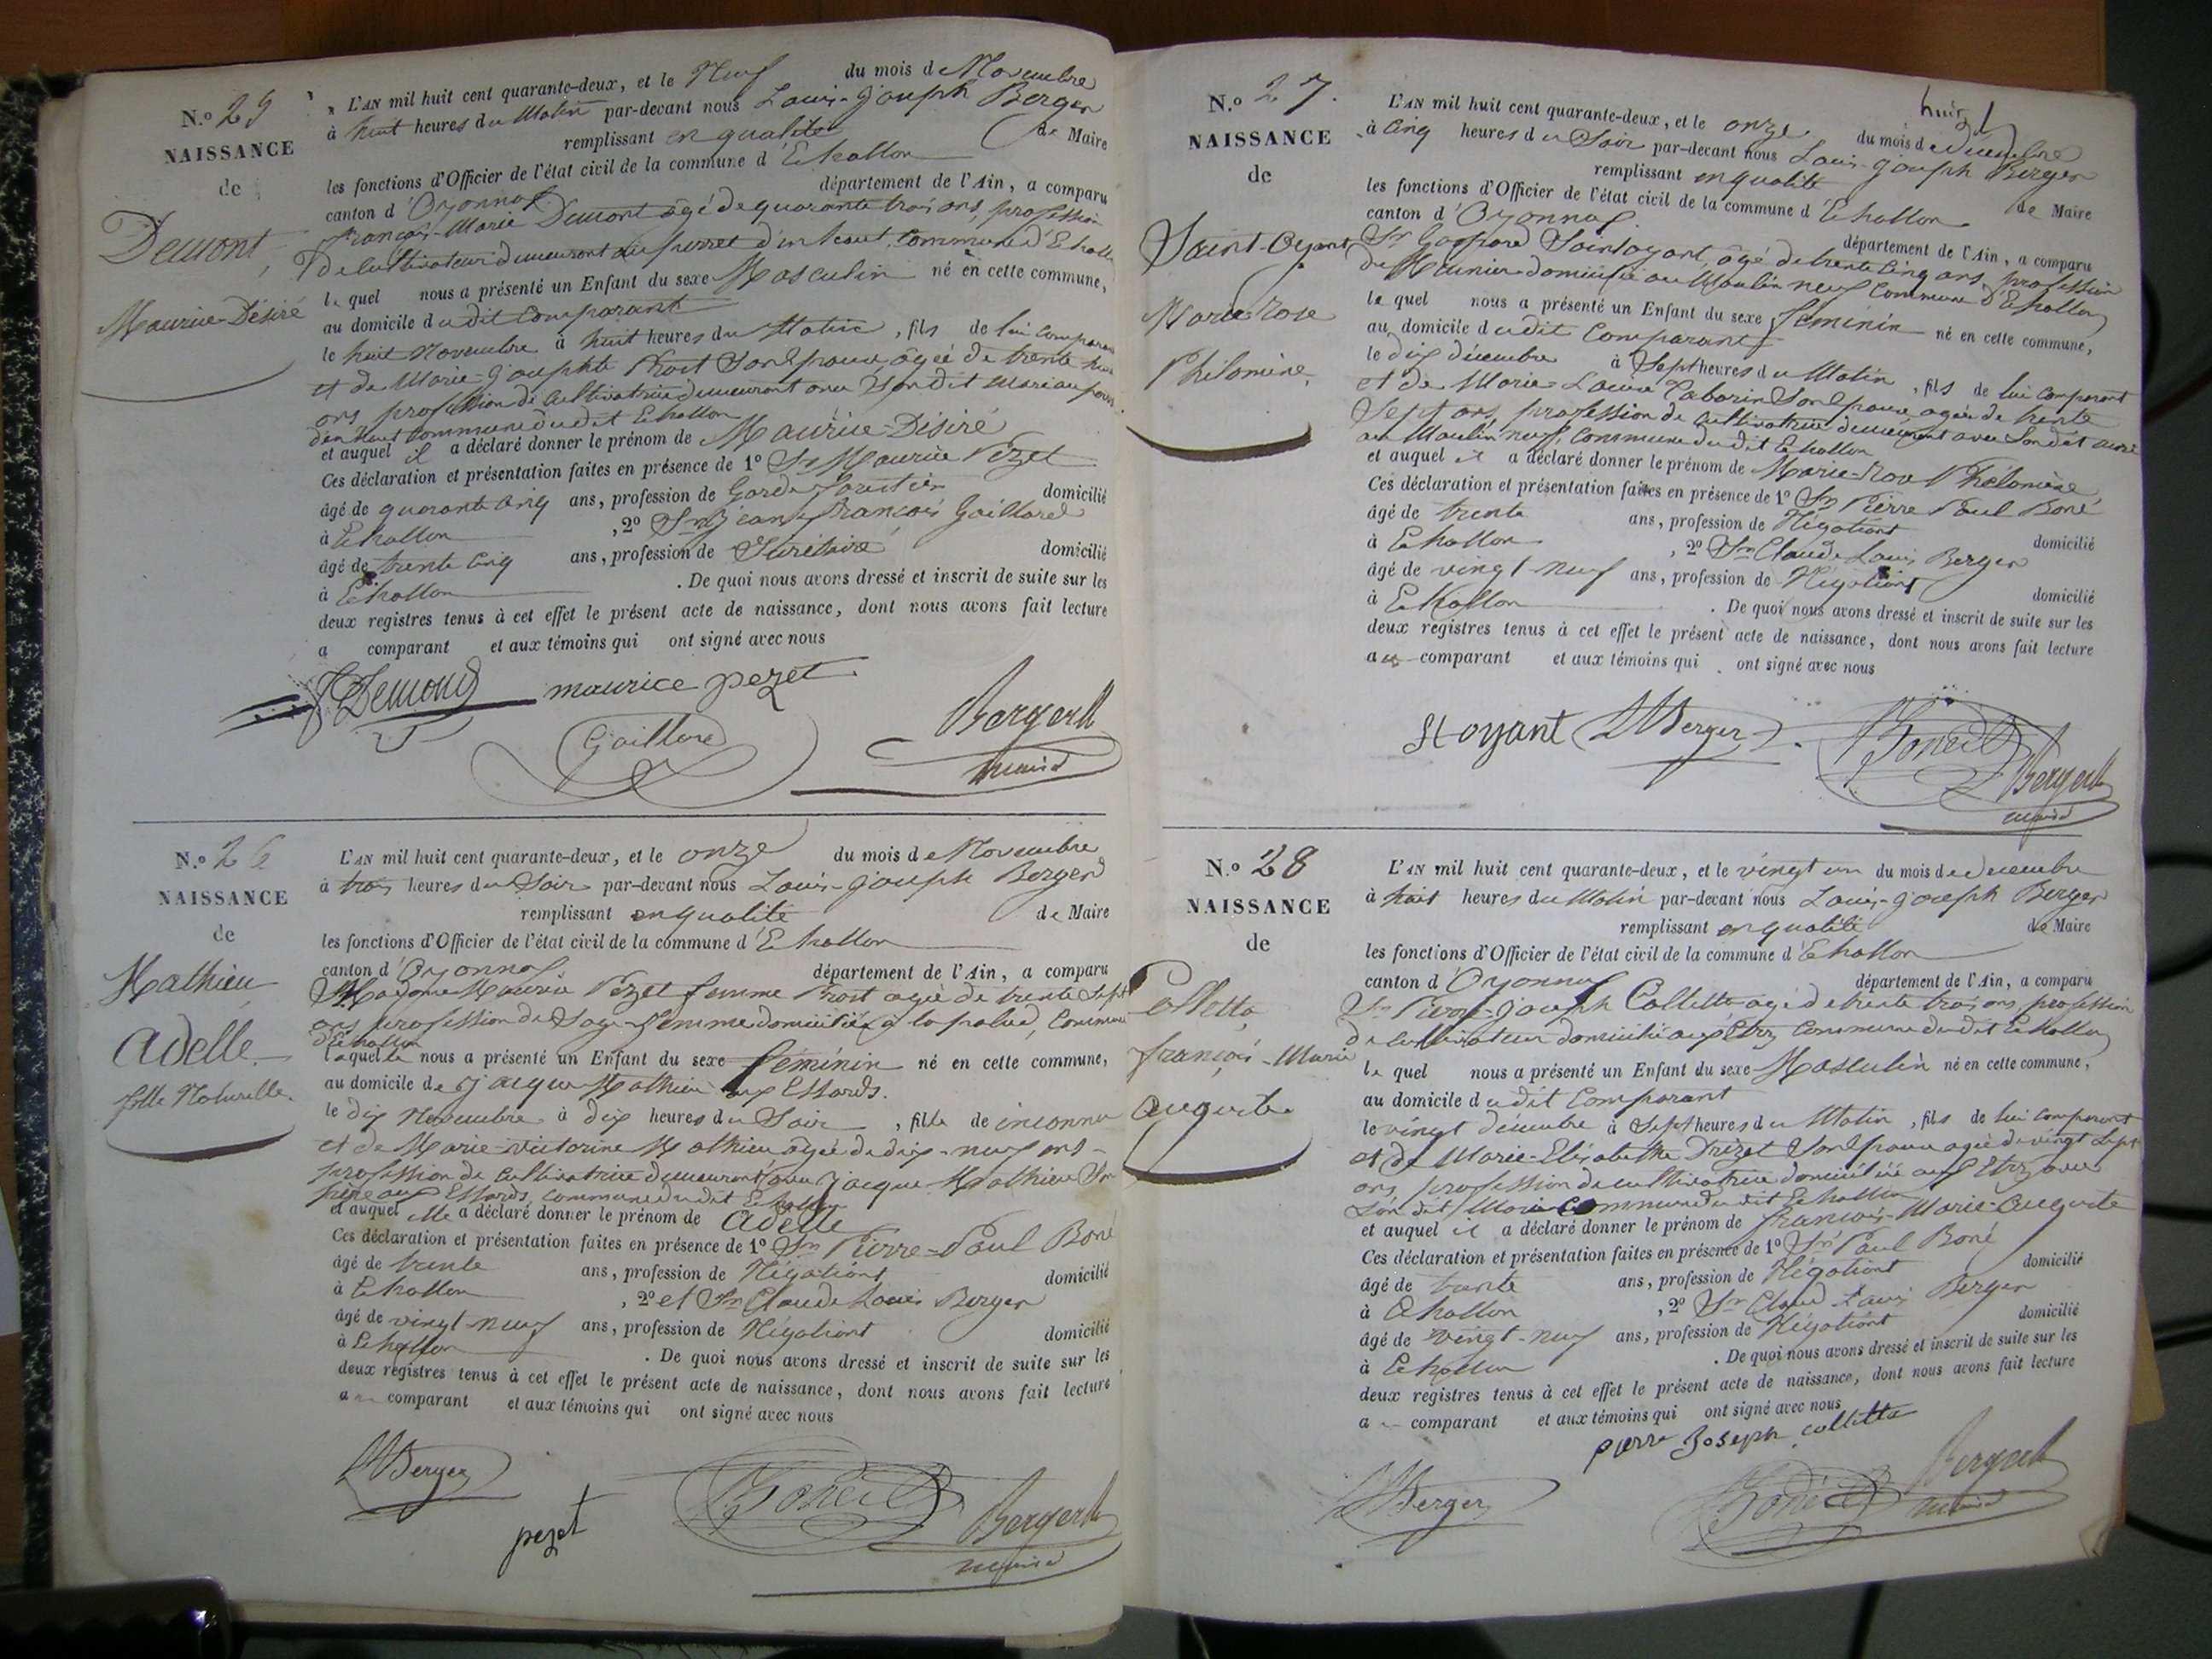 N.º 25
NAISSANCE
de
Demont,
Maurice-Désiré
L'AN mil huit cent quarante-deux, et le Neuf du mois de Novembre
à huit heures du Matin par-devant nous Louis-Joseph Berger
remplissant en qualité de Maire
les fonctions d'Officier de l'état civil de la commune d'Echallon
canton d'Oyonnax département de l'Ain, a comparu
françois-Marie Demont âgé de quarante trois ans, profession
de Cultivateur demeurant au d'en haut, Commune d'Echallon
lequel nous a présenté un Enfant du sexe Masculin né en cette commune,
au domicile du dit Comparant
le huit Novembre à huit heures du Matin, fils de lui Comparant
et de Marie-Josephte Prost Son Epouse, âgée de trente
ans profession de Cultivatrice demeurant avec Son dit Mari au
d'en haut Commune du dit Echallon
et auquel il a déclaré donner le prénom de Maurice-Désiré
Ces déclaration et présentation faites en présence de 1º Sr Maurice Pezet
âgé de quarante cinq ans, profession de Garde forestier domicilié
à Echallon, 2º Sr Jean françois Gaillard
âgé de trente cinq ans, profession de Secrétaire domicilié
à Echallon. De quoi nous avons dressé et inscrit de suite sur les
deux registres tenus à cet effet le présent acte de naissance, dont nous avons fait lecture
a comparant et aux témoins qui ont signé avec nous
Demond maurice pezet
Gaillard Berger
maire
N.º 26
NAISSANCE
de
Mathieu
Adelle
fille Naturelle.
L'AN mil huit cent quarante-deux, et le onze du mois de Novembre
à trois heures du Soir par-devant nous Louis-Joseph Berger
remplissant en qualité de Maire
les fonctions d'Officier de l'état civil de la commune d'Echallon
canton d'Oyonnax département de l'Ain, a comparu
Pezet femme Prost agée de trente Sept
ans profession de Sage-femme domiciliée à la palud, Commune
d'Echallon
laquelle nous a présenté un Enfant du sexe féminin né en cette commune,
au domicile de Jacque Mathieu aux Essards.
le dix Novembre à dix heures du Soir, fille de inconnu
et de Marie-victorine Mathieu âgée de dix-neuf ans
profession de cultivatrice demeurant avec Jacque Mathieu Son
père aux Essards, commune du dit Echallon
et auquel elle a déclaré donner le prénom de Adelle
Ces déclaration et présentation faites en présence de 1º Sr Pierre-Paul Boné
âgé de trente ans, profession de Négotiant domicilié
à Echallon, 2º et Sr Claude Louis Berger
âgé de vingt-neuf ans, profession de Négotiant domicilié
à Echallon. De quoi nous avons dressé et inscrit de suite sur les
deux registres tenus à cet effet le présent acte de naissance, dont nous avons fait lecture
a comparant et aux témoins qui ont signé avec nous
Berger
pezet Boné Berger
maire
N.º 27.
NAISSANCE
de
Saint-Oyant
Marie-rose
Philomène.
L'AN mil huit cent quarante-deux, et le onze du mois de decembre
à Cinq heures du Soir par-devant nous Louis-Joseph Berger
remplissant en qualité de Maire
les fonctions d'Officier de l'état civil de la commune d'Echallon
canton d'Oyonnax département de l'Ain, a comparu
Sr Gaspard Saintoyant, âgé de trente Cinq ans, profession
de Meunier domicilié au Moulin neuf Commune d'Echallon
lequel nous a présenté un Enfant du sexe féminin né en cette commune,
au domicile du dit Comparant
le dix décembre à Sept heures du Matin, fils de lui Comparant
et de Marie-Louise Tabarin Son Epouse agée de trente
Sept ans, profession de Cultivatrice demeurant avec Son dit mari
au Moulin neuf, Commune du dit Echallon
et auquel il a déclaré donner le prénom de Marie-rose Philomène
Ces déclaration et présentation faites en présence de 1º Sr Pierre Paul Boné
âgé de trente ans, profession de Négotiant domicilié
à Echallon, 2º Sr Claude Louis Berger
âgé de vingt-neuf ans, profession de Négotiant domicilié
à Echallon. De quoi nous avons dressé et inscrit de suite sur les
deux registres tenus à cet effet le présent acte de naissance, dont nous avons fait lecture
au comparant et aux témoins qui ont signé avec nous
St oyant Berger Boné
Berger
maire
N.º 28
NAISSANCE
de
Colletta
françois-Marie
Auguste
L'AN mil huit cent quarante-deux, et le vingt un du mois de decembre
à huit heures du Matin par-devant nous Louis-Joseph Berger
remplissant en qualité de Maire
les fonctions d'Officier de l'état civil de la commune d'Echallon
canton d'Oyonnax département de l'Ain, a comparu
Sr Pierre-Joseph Collette agé de trente trois ans profession
de cultivateur domicilié aux Commune du dit Echallon
lequel nous a présenté un Enfant du sexe Masculin né en cette commune,
au domicile du dit Comparant
le vingt décembre à Sept heures du Matin, fils de lui Comparant
et de Marie-Elisabethe Son Epouse agée de vingt Sept
ans, profession de cultivatrice domiciliée aux avec
Son dit Mari Commune du dit Echallon
et auquel il a déclaré donner le prénom de françois-Marie-Auguste
Ces déclaration et présentation faites en présence de 1º Sr Paul Boné
âgé de trente ans, profession de Négotiant domicilié
à Echallon, 2º Sr Claude Louis Berger
âgé de vingt-neuf ans, profession de Négotiant domicilié
à Echallon. De quoi nous avons dressé et inscrit de suite sur les
deux registres tenus à cet effet le présent acte de naissance, dont nous avons fait lecture
a comparant et aux témoins qui ont signé avec nous
pierre Joseph colletta
Berger Boné Berger
maire